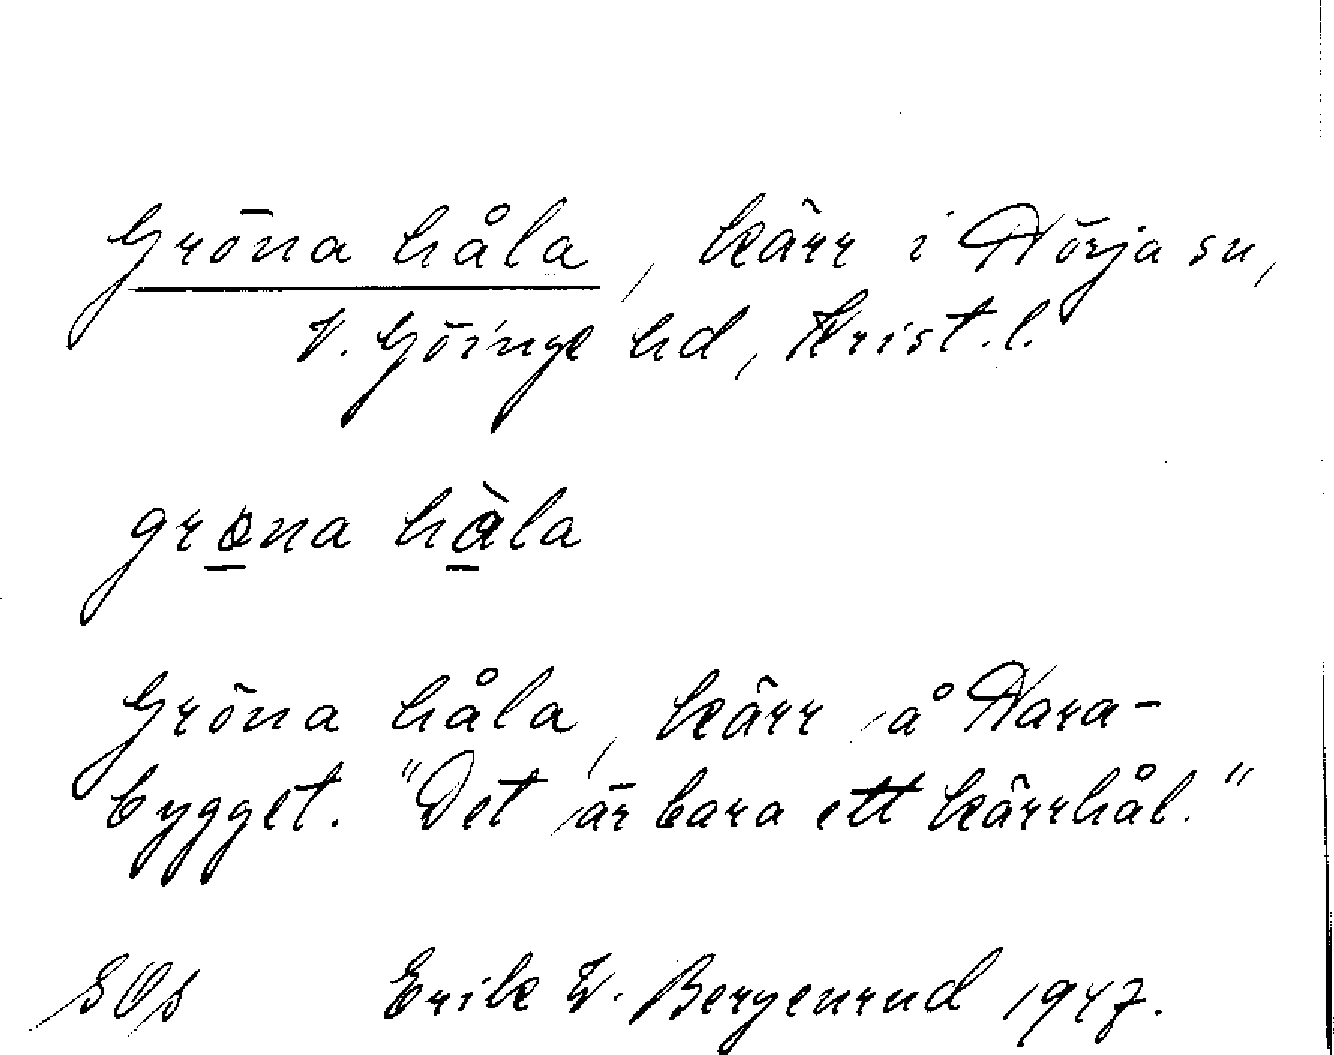 Gröna håla, kärr i Nörja sn,
V. Göinge hd, Krist. l.
grøna hàla
Gröna håla, kärr å Nara-
bygget. "Det är bara ett kärrhål."
Erik W. Bergenrud 1947.